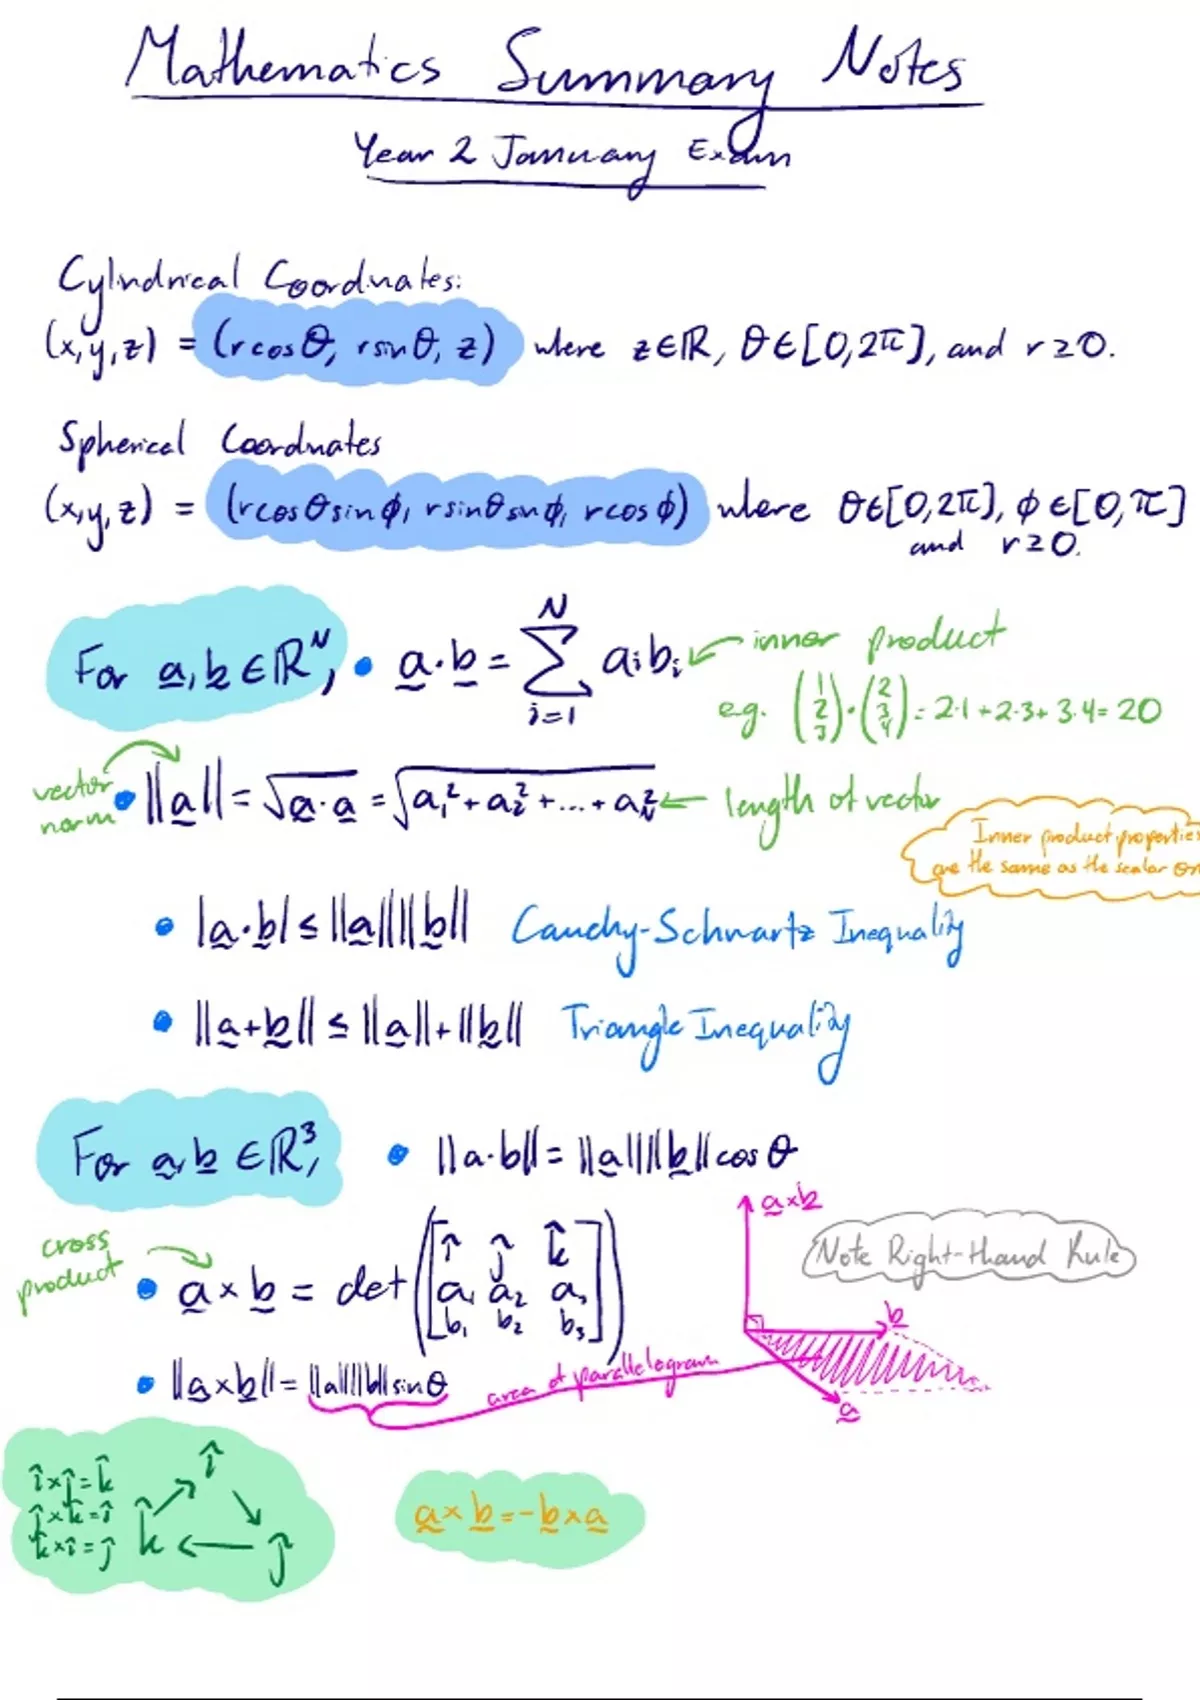 Mathematics Summary Notes
Year 2 January Exam
Cylindrical Coordinates:
(x,y,z) = (rcosθ, rsinθ, z) where z∈ℝ, θ∈[0,2π], and r≥0.
Spherical Coordinates
(x,y,z) = (rcosθsinϕ, rsinθsinϕ, rcosϕ) where θ∈[0,2π], ϕ∈[0,π]
and r≥0.
For a, b ∈ ℝᴺ, • a·b = ∑_{i=1}^{N} aᵢbᵢ ← inner product
e.g. (1 2 3)·(2 3 4) = 2·1 + 2·3 + 3·4 = 20
vector norm • ||a|| = √(a·a) = √(a₁² + a₂² + ... + a_N²) ← length of vector
Inner product properties
are the same as the scalar on
• |a·b| ≤ ||a|| ||b|| Cauchy-Schwartz Inequality
• ||a+b|| ≤ ||a|| + ||b|| Triangle Inequality
For a, b ∈ ℝ³, • ||a·b|| = ||a|| ||b|| cosθ
cross product • a × b = det([î ĵ k̂
a₁ a₂ a₃
b₁ b₂ b₃])
a×b
Note Right-Hand Rule
b
a
• ||a×b|| = ||a|| ||b|| sinθ area of parallelogram
î×ĵ=k̂
ĵ×k̂=î
k̂×î=ĵ
î
k̂ ← ĵ
a × b = - b × a